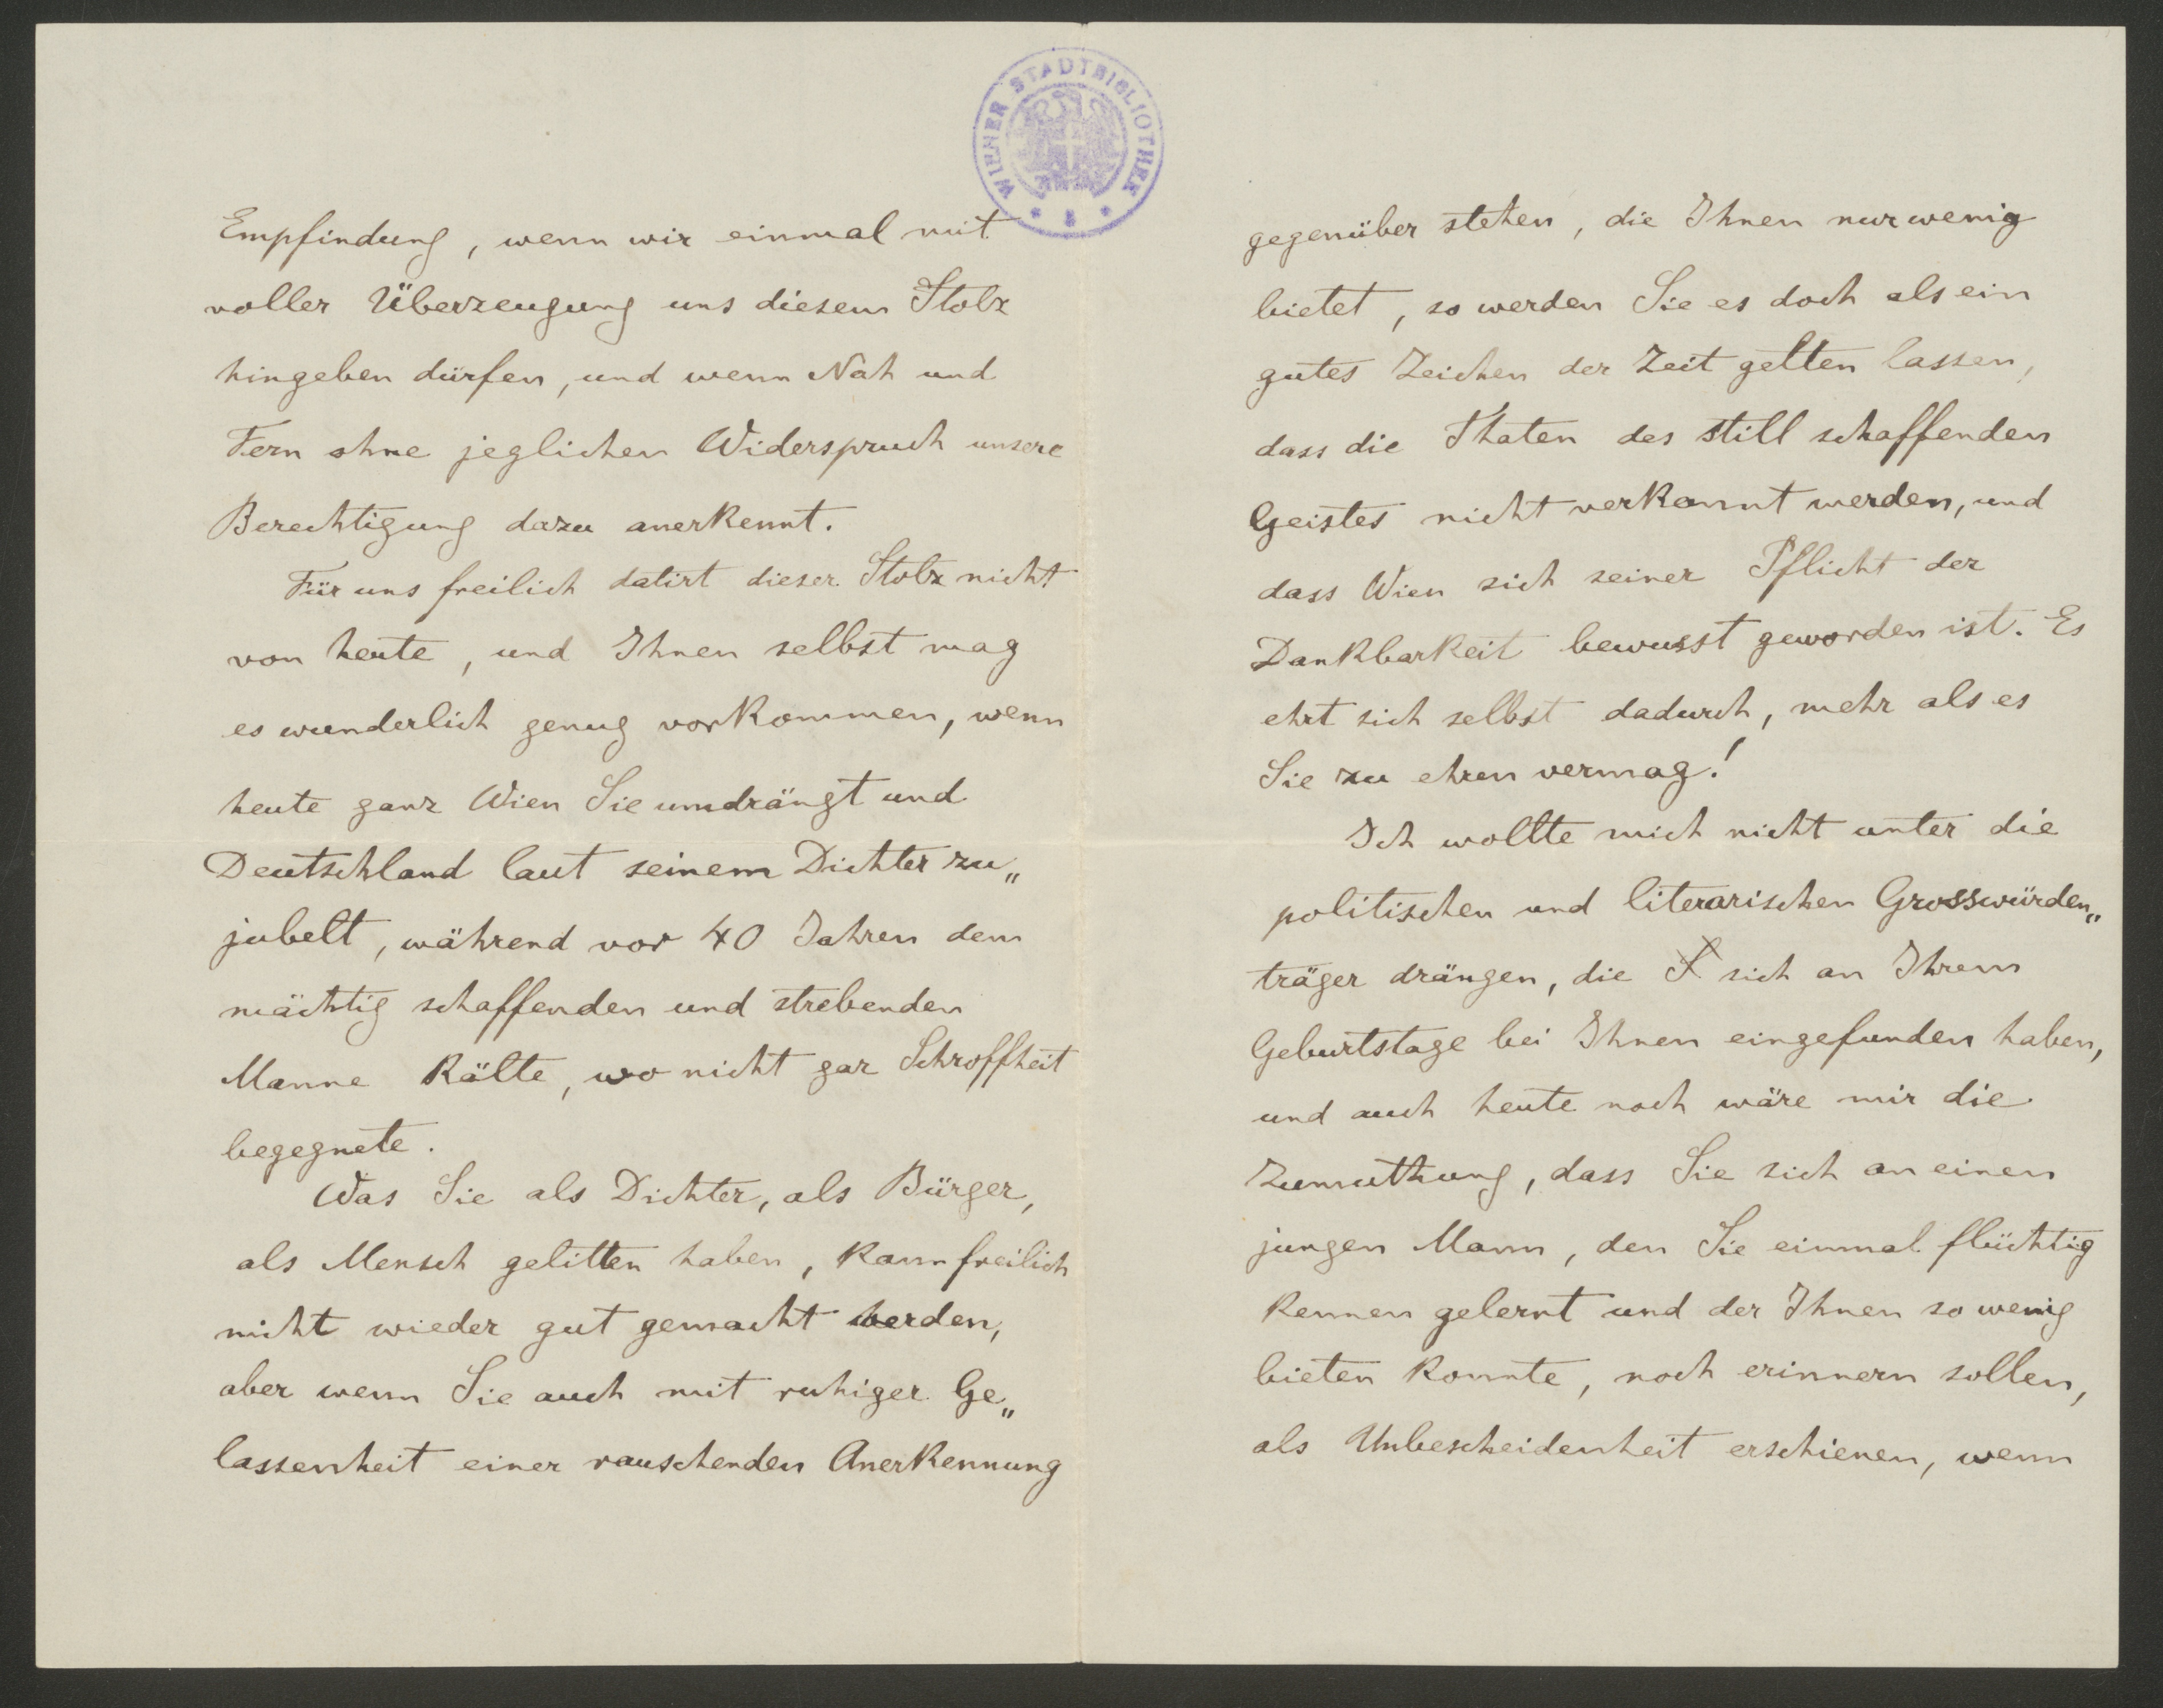 WIENER STADTBIBLIOTHEK
Empfindung, wenn wir einmal mit
voller Überzeugung uns diesem Stolz
hingeben dürfen, und wenn Nah und
Fern ohne jeglichen Widerspruch unsere
Berechtigung dazu anerkennt.
Für uns freilich datirt dieser Stolz nicht
von heute, und Ihnen selbst mag
es wunderlich genug vorkommen, wenn
heute ganz Wien Sie umdrängt und
Deutschland laut seinem Dichter zu„
jubelt, während vor 40 Jahren dem
mächtig schaffenden und strebenden
Manne Kälte, wo nicht gar Schroffheit
begegnete.
Was Sie als Dichter, als Bürger,
als Mensch gelitten haben, kann freilich
nicht wieder gut gemacht werden,
aber wenn Sie auch mit ruhiger Ge„
lassenheit einer rauschenden Anerkennung
gegenüber stehen, die Ihnen nur wenig
bietet, so werden Sie es doch als ein
gutes Zeichen der Zeit gelten lassen,
dass die Thaten des still schaffenden
Geistes nicht verkannt werden, und
dass Wien sich seiner Pflicht der
Dankbarkeit bewusst geworden ist. Es
ehrt sich selbst dadurch, mehr als es
Sie zu ehren vermag!
Ich wollte mich nicht unter die
politischen und literarischen Grosswürden„
träger drängen, die S sich an Ihrem
Geburtstage bei Ihnen eingefunden haben,
und auch heute noch wäre mir die
Zumuthung, dass Sie sich an einen
jungen Mann, den Sie einmal flüchtig
kennen gelernt und der Ihnen so wenig
bieten konnte, noch erinnern sollen,
als Unbescheidenheit erschienen, wenn